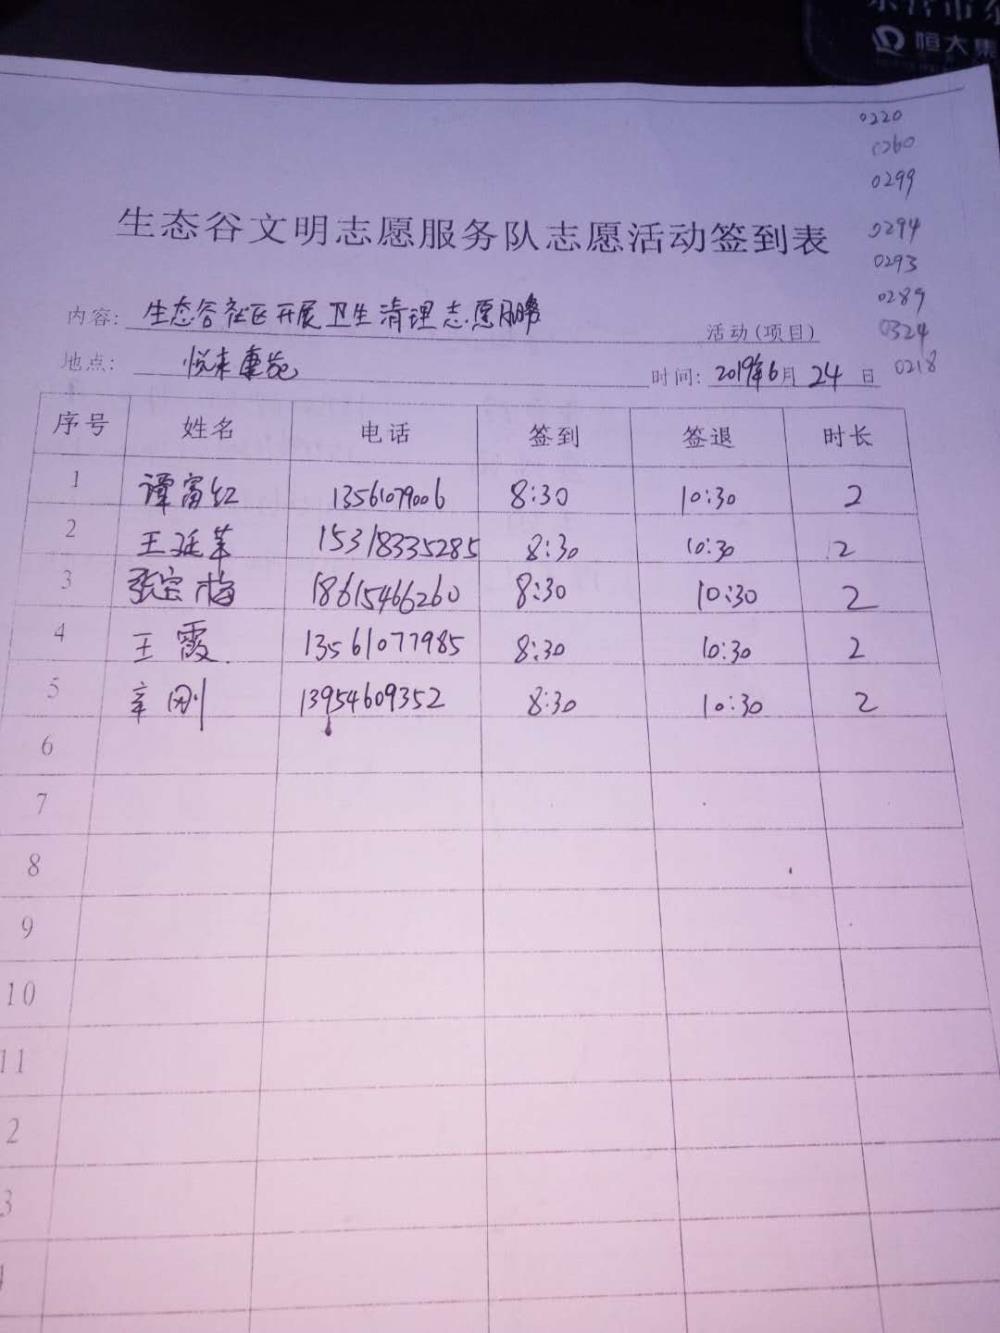 恒大集
0220
0260
0299
生态谷文明志愿服务队志愿活动签到表
0294
0293
内容: 生态谷社区开展卫生清理志愿服务 活动(项目)
0289
0324
地点: 悦来康苑 时间: 2019年6月24日
0218
序号 姓名 电话 签到 签退 时长
1 谭富红 13561079006 8:30 10:30 2
2 王廷革 15318335285 8:30 10:30 2
3 张宝梅 18615466260 8:30 10:30 2
4 王霞 13561077985 8:30 10:30 2
5 辛刚 13954609352 8:30 10:30 2
6
7
8
9
10
11
2
3